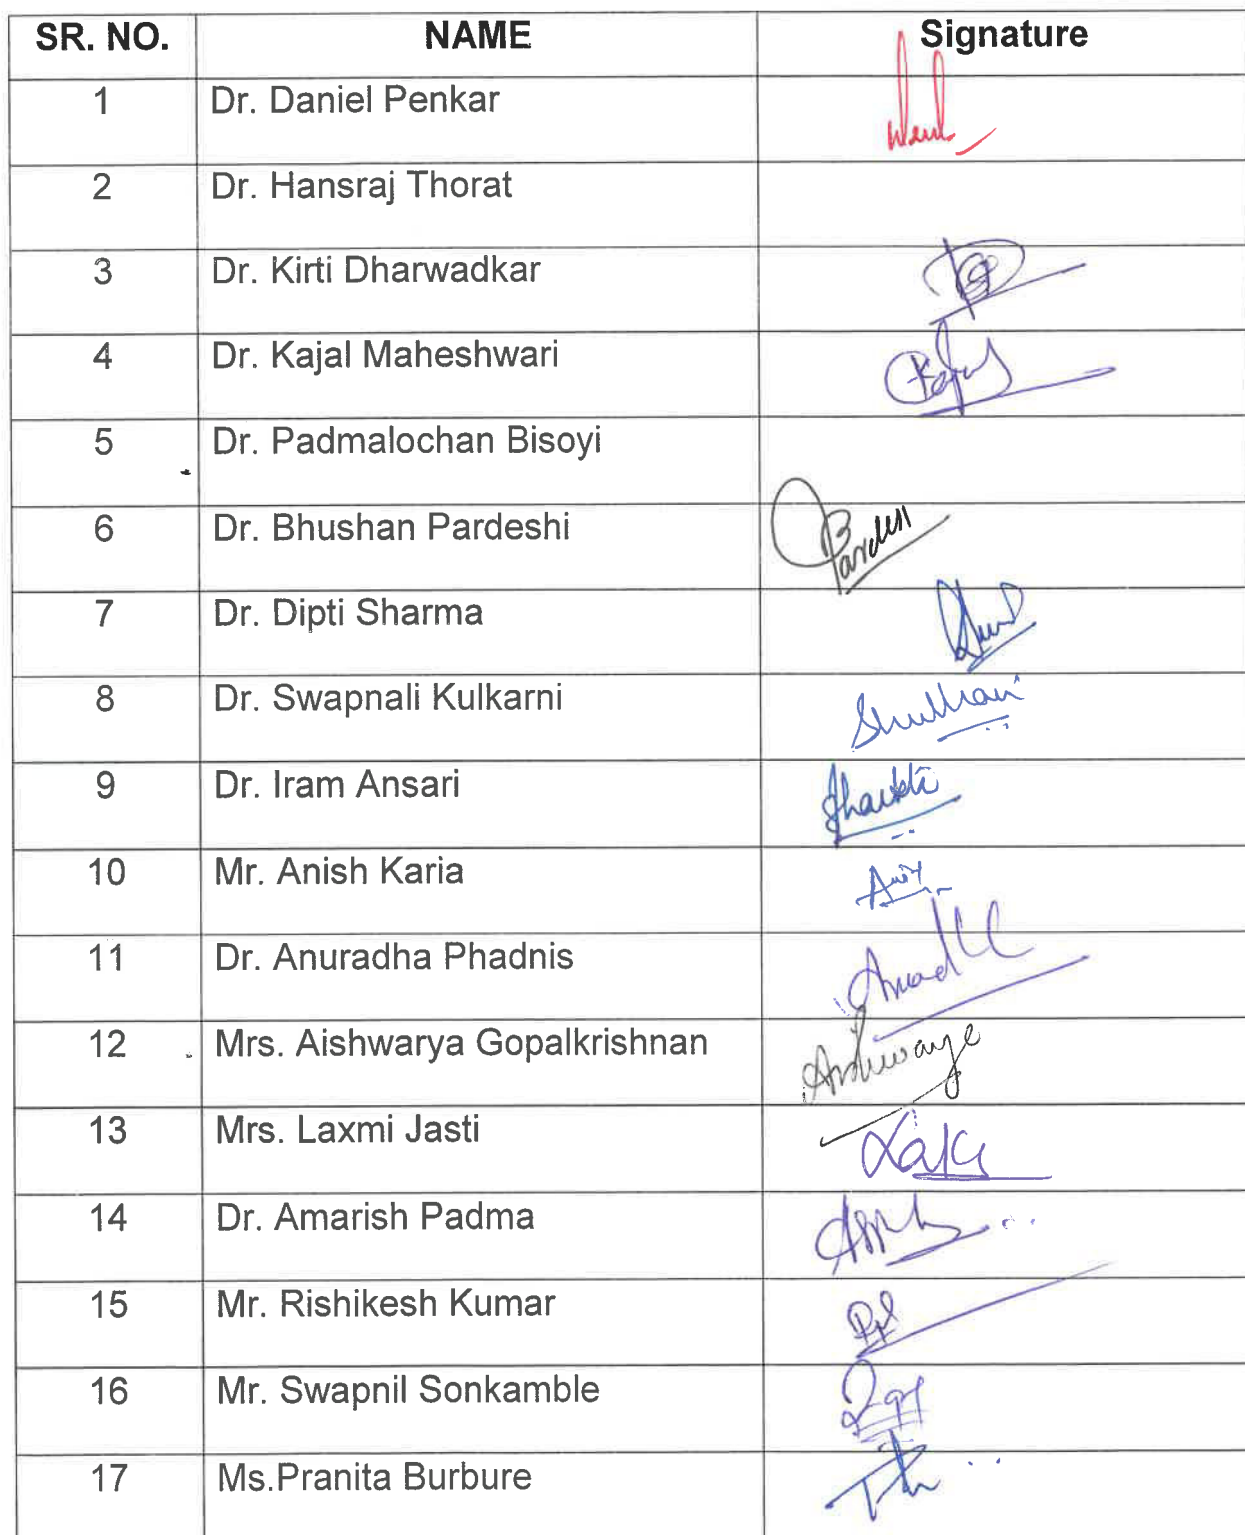 SR. NO. NAME Signature
1 Dr. Daniel Penkar
2 Dr. Hansraj Thorat
3 Dr. Kirti Dharwadkar
4 Dr. Kajal Maheshwari
5 Dr. Padmalochan Bisoyi
6 Dr. Bhushan Pardeshi
7 Dr. Dipti Sharma
8 Dr. Swapnali Kulkarni
9 Dr. Iram Ansari
10 Mr. Anish Karia
11 Dr. Anuradha Phadnis
12 Mrs. Aishwarya Gopalkrishnan
13 Mrs. Laxmi Jasti
14 Dr. Amarish Padma
15 Mr. Rishikesh Kumar
16 Mr. Swapnil Sonkamble
17 Ms.Pranita Burbure